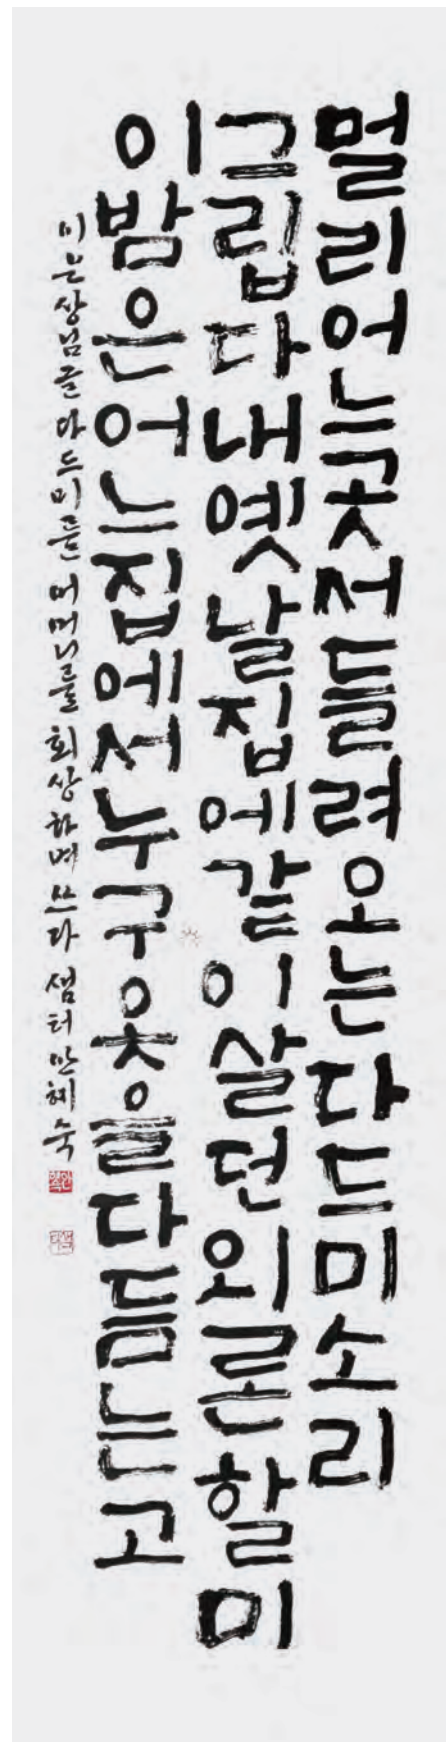 멀리어느곳서들려오는다드미소리
그립다내옛날집에같이살던외론할미
이밤은어느집에서누구옷을다듬는고
이은상님글다드미를어머니를회상하며쓰다 샘터안혜숙